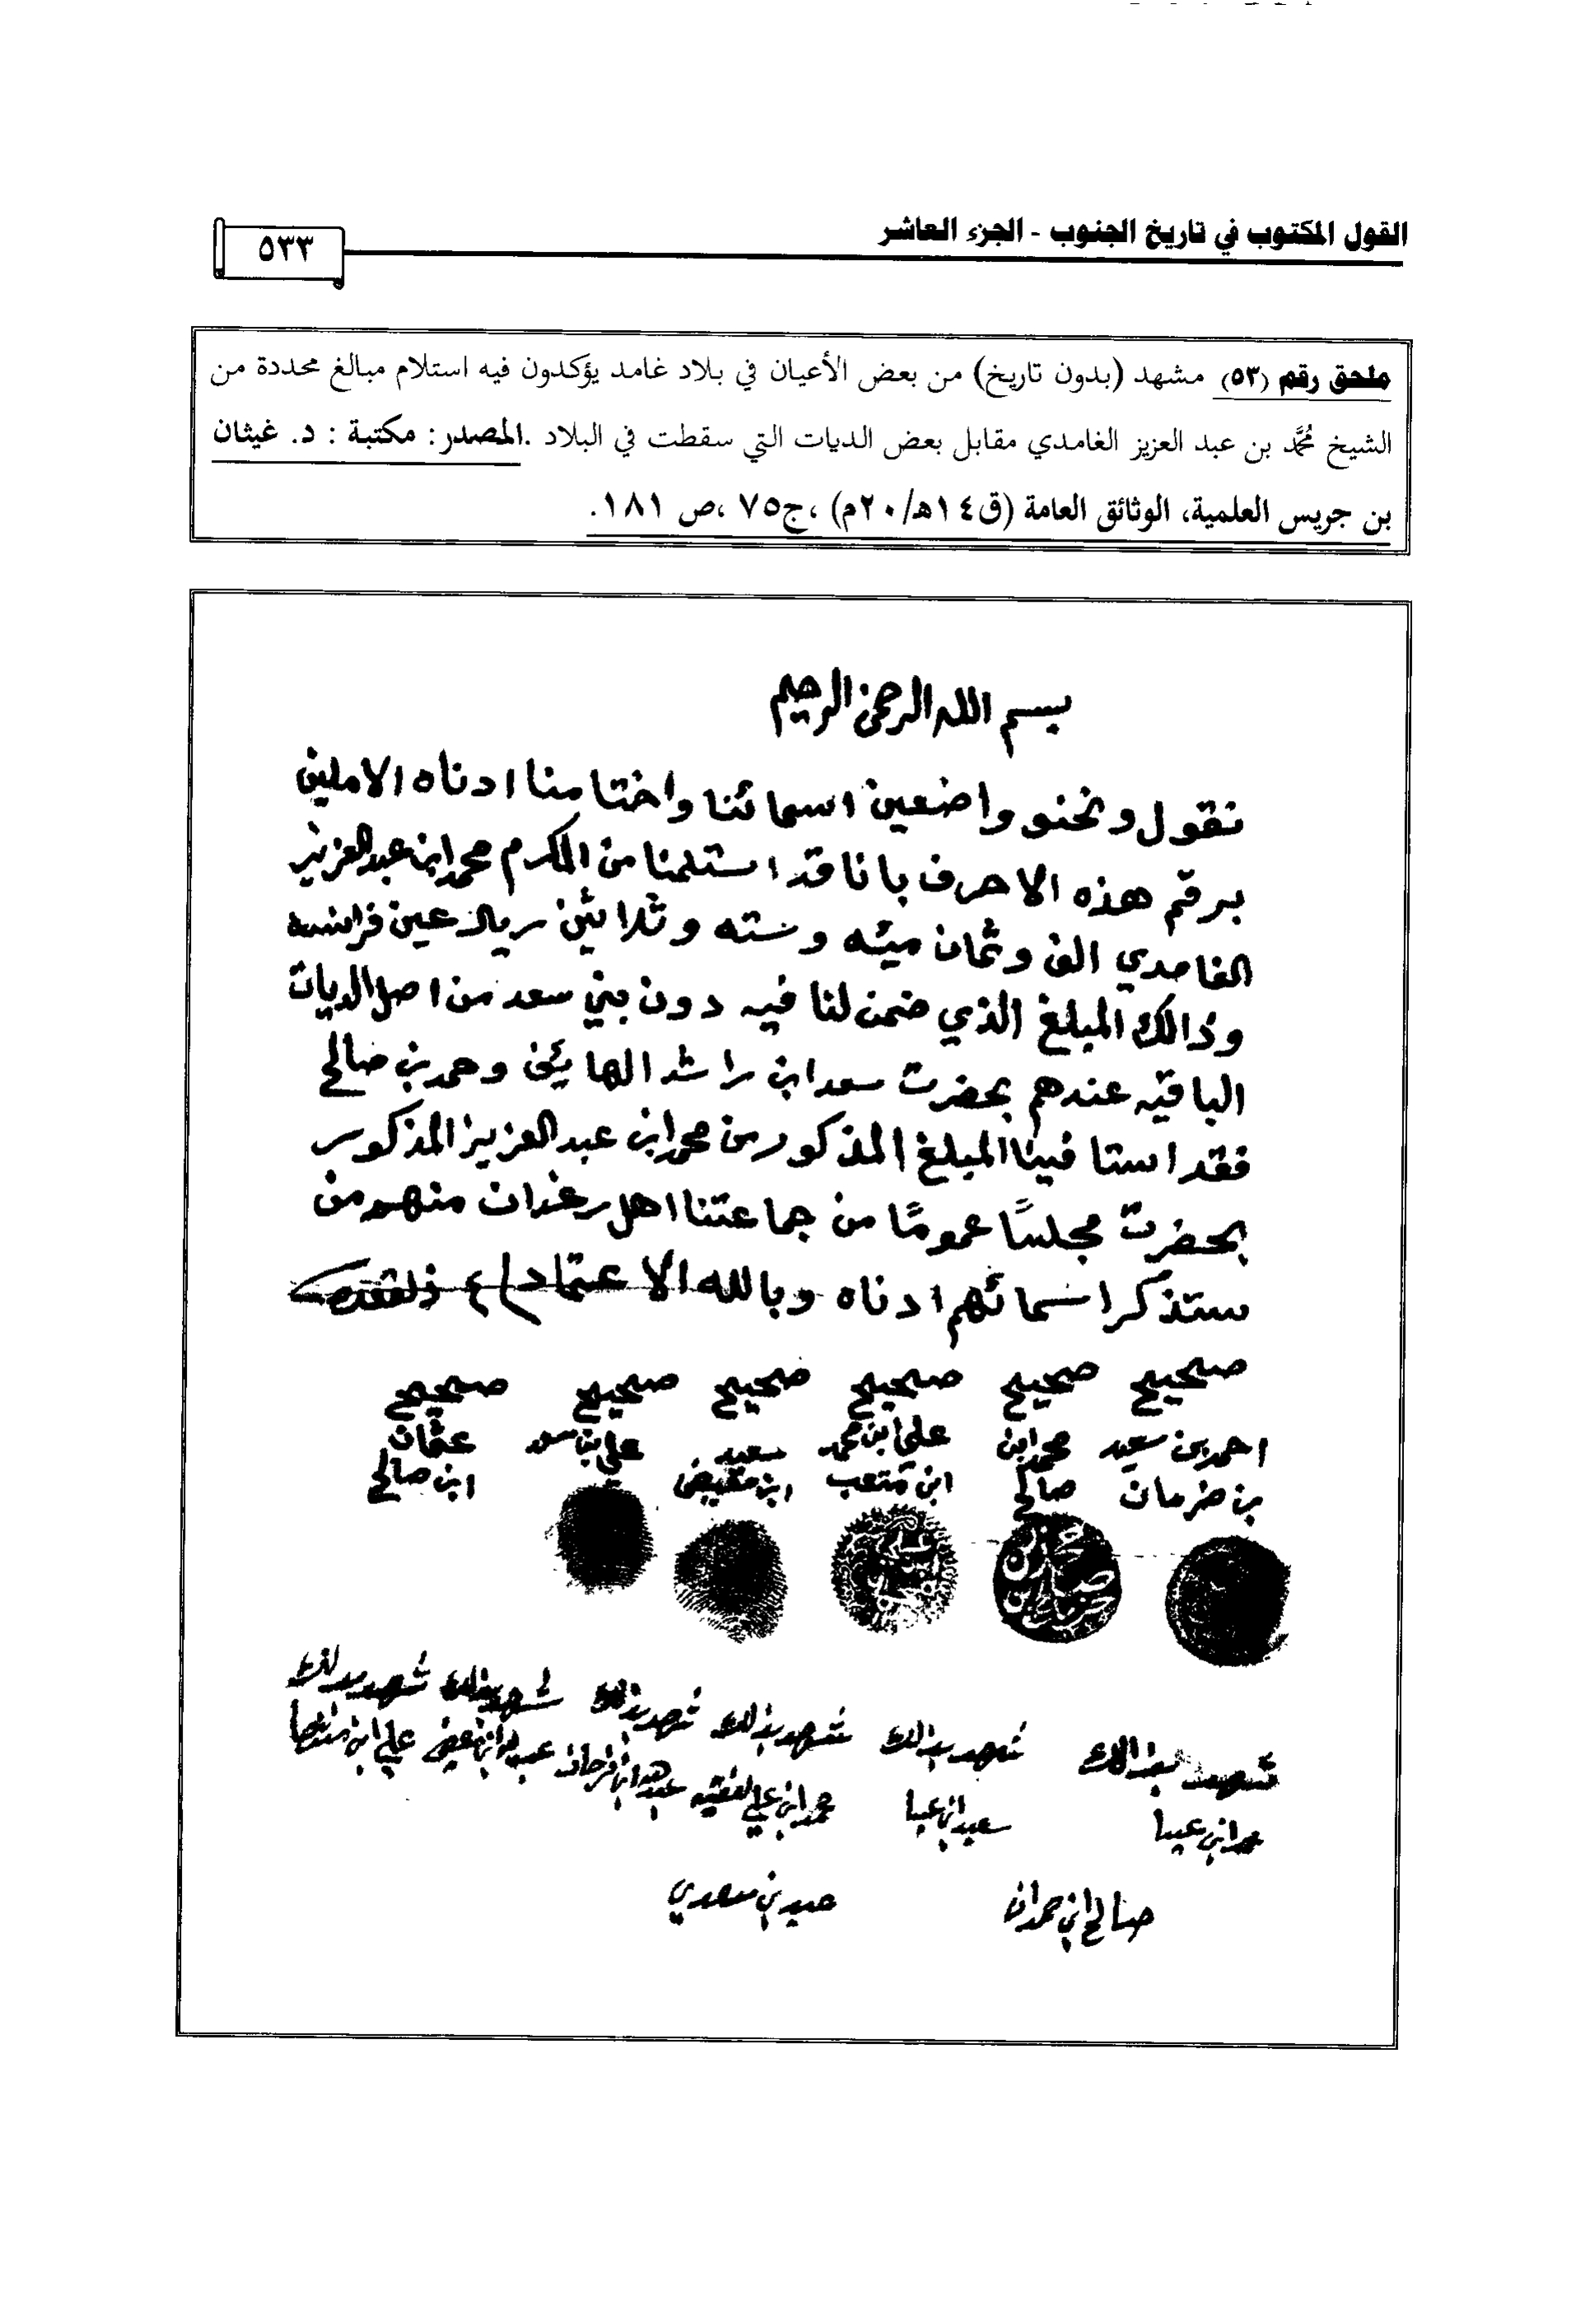 القول المكتوب في تاريخ الجنوب - الجزء العاشر
٥٣٣
ملحق رقم (٥٣) مشهد (بدون تاريخ) من بعض الأعيان في بلاد غامد يؤكدون فيه استلام مبالغ محددة من
الشيخ مُحَمَّد بن عبد العزيز الغامدي مقابل بعض الديات التي سقطت في البلاد .المصدر: مكتبة : د. غيثان
بن جريس العلمية، الوثائق العامة (ق١٤هـ/٢٠م) ،ج٧٥ ،ص ١٨١.
بسم الله الرحمن الرحيم
نقول ونحنو واضعين اسمائنا واختامنا ادناه الاملين
برقم هذه الاحرف بانا قد استلمنا من المكرم محمد ابن عبدالعزيز
الغامدي الف وثمان ميئه وسته وثلاثين ريال عين فرانسه
وذالك المبلغ الذي ضمن لنا فيه دون بني سعد من اصل الديات
الباقيه عندهم بحضرت سعد ابن راشد الهائي وحمد بن صالح
فقد استا فينا المبلغ المذكور من محمد ابن عبدالعزيز المذكور
بحضرت مجلسًا عمومًا من جماعتنا اهل رغدان منهم من
ستذكر اسمائهم ادناه وبالله الاعتماد
صحيح صحيح صحيح صحيح صحيح صحيح
احمد بن سعيد محمد ابن علي ابن محمد سعيد علي بن سعد عثمان
بن ضرمان صالح ابن متعب ابن مقيض ابن صالح
شهد بذالك شهد بذالك شهد بذالك شهد بذالك شهد بذالك شهد بذالك
سعيد ابن عبدا محمد ابن علي الفقيه
صالح ابن حمدان